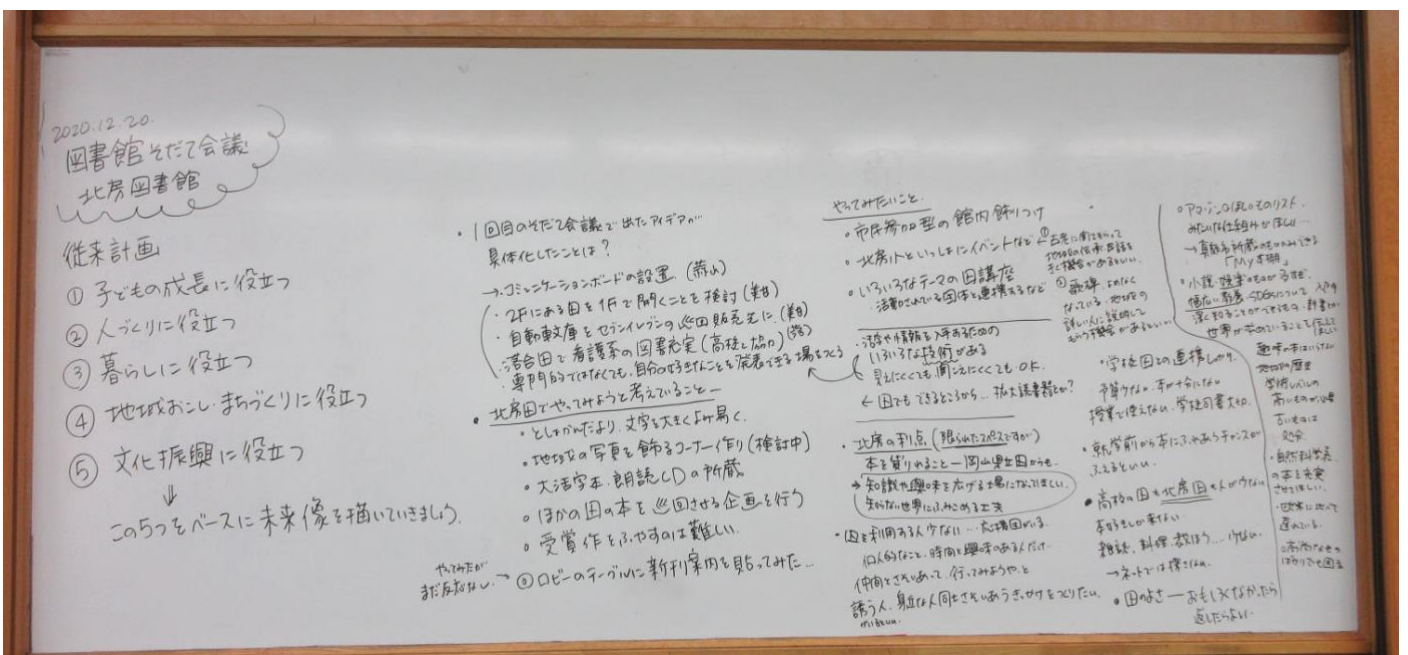 2020.12.20.
図書館そだて会議
北房図書館
従来計画
① 子どもの成長に役立つ
② 人づくりに役立つ
③ 暮らしに役立つ
④ 地域おこし・まちづくりに役立つ
⑤ 文化振興に役立つ
↓
この5つをベースに未来像を描いていきましょう。
・1回目のそだて会議で出たアイデアが…
具体化したことは?
→・コミュニケーションボードの設置 (蒜山)
・2Fにある図を1Fで開くことを検討 (美甘)
・自動車文庫をセブンイレブンの巡回販売先に (美甘)
・落合図で看護系の図書充実 (高校と協力) (落合)
・専門的ではなくても、自分の好きなことを発表できる場をつくる
・北房図でやってみようと考えていること
・としょかんだより、文字を大きくよみ易く。
・地域の写真を飾るコーナー作り (検討中)
・大活字本・朗読CDの所蔵
・ほかの図の本を巡回させる企画を行う
・受賞作をふやすのは難しい。
やってみたが
まだ反応なし。→
◎ロビーのテーブルに新刊案内を貼ってみた…
やってみたいこと
・市民参加型の館内飾りつけ
・北房小といっしょにイベントなど
・いろいろなテーマの図講座
活動されている団体と連携するなど
・活字や情報を入手するための
いろいろな技術がある
見えにくくても聞こえにくくてもOK.
← 図でもできるところから… 拡大読書器とか?
・北房の利点 (限られたスペースですが)
本を借りれること ー 岡山県立図からも
→ 知識や興味を広げる場になってほしい
知らない世界にふみこめる工夫
・図を利用する人少ない…
個人的なこと、時間と興味のある人だけ。
仲間とさそいあって、行ってみようや、と
誘う人、身近な人同士さそいあうきっかけをつくりたい。
がいるといい。
① 古老に聞てまわって
地域の伝承・昔話を
きく機会があるといい。
② 歌碑、よめなく
なっている。地域の
詳しい人に説明して
もらう機会があるといい
・学校図との連携しっかり。
予算少ない、本が十分にない
授業で使えない、学校司書大切。
・就学前から本にふれあうチャンスが
ふえるといい。
・高校の図も北房図も人が少ない
本好きしか来ない
雑誌、料理、数ほう…少ない
→ネットでは探さない
・図のよさ ー おもしろくなかったら
返したらよい。
・アマゾンのほしいものリスト
みたいな仕組みがほしい…
→真庭市所蔵のものみれる
「My本棚」
・小説・娯楽ものが多すぎ。
幅広い教養・SDGsについて
深く知ることができるもの
世界が求めていることを
趣味の本はいらない
地域や歴史
学術レベルの
高いものが必要
古いものは
処分
・自然科学系
の本を充実
させてほしい。
遅れている。